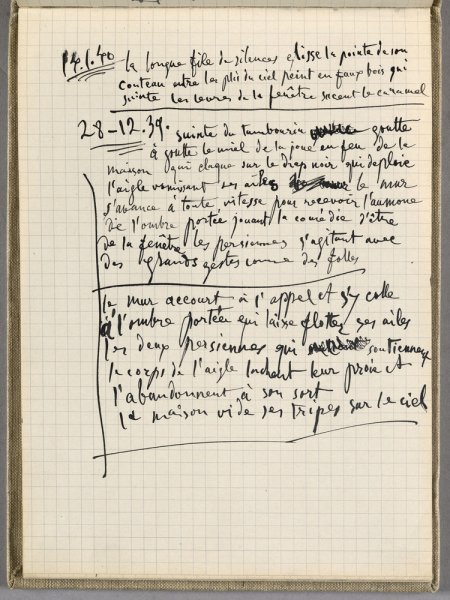 14.1.40 la longue file de silences glisse la pointe de son
couteau entre les plis du ciel peint en faux bois qui
suinte les levres de la fenêtre sucent le caramel
28-12.39. suinte du tambourin goutte
à goutte le miel de la joue en feu de la
maison qui claque sur le drap noir qui deploie
l'aigle vomissant ses ailes le mur
s'avance à toute vitesse pour recevoir l'aumone
de l'ombre portée jouant la comédie d'être
de la fenêtre les persiennes s'agitant avec
des grands gestes comme des folles
le mur accourt à l'appel et s'y colle
à l'ombre portée qui laisse flotter ses ailes
les deux persiennes qui soutiennent
le corps de l'aigle lachent leur proie et
l'abandonnent à son sort
la maison vide ses tripes sur le ciel